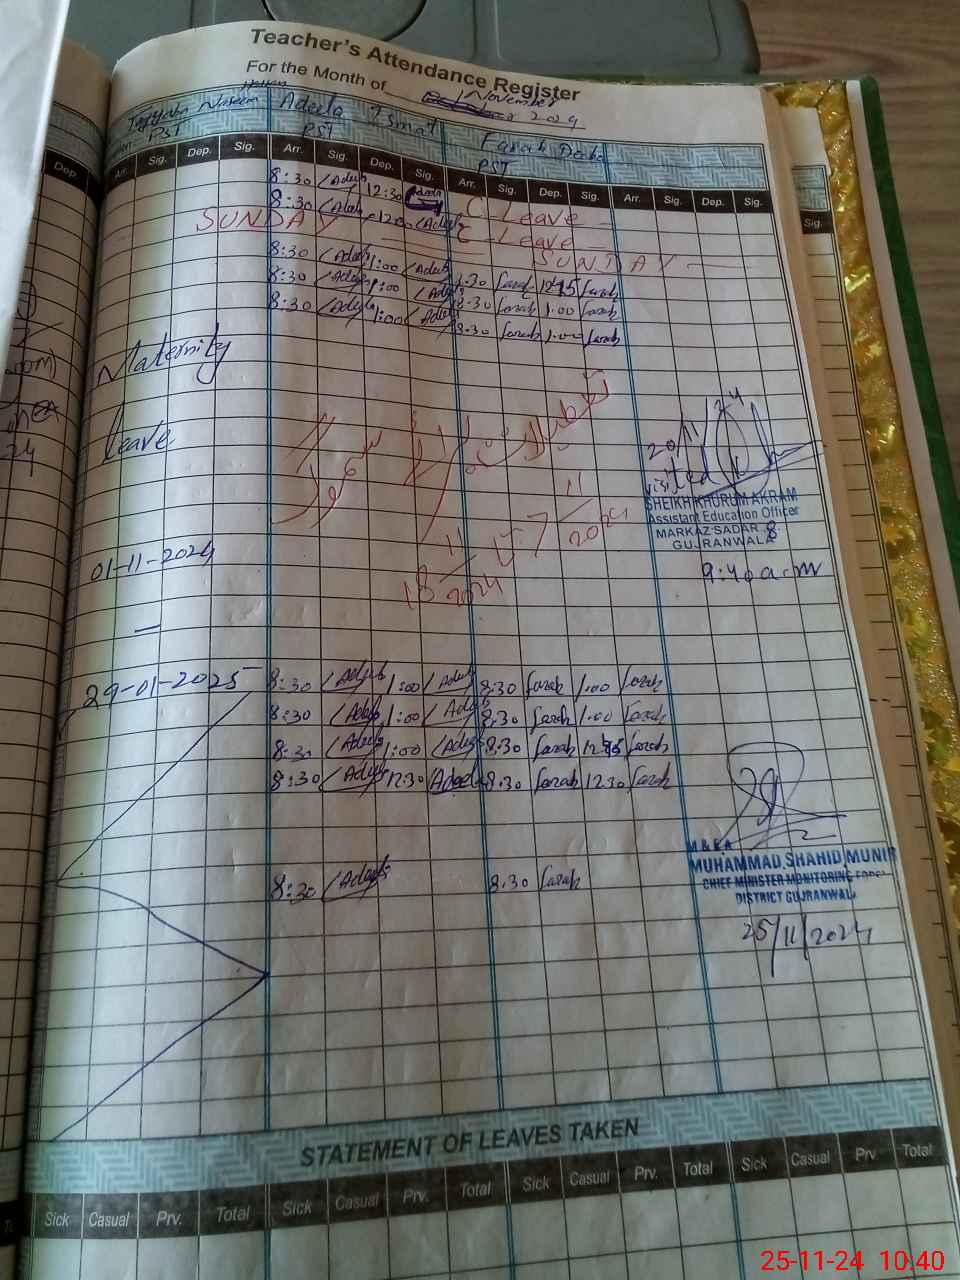 Teacher's Attendance Register
For the Month of November 2024
Naseem Adeela Ismat Farah Deeba
PST PST PST
Dep. Arr. Sig. Dep. Sig. Arr. Sig. Dep. Sig. Arr. Sig. Dep. Sig. Arr. Sig. Dep. Sig. Sig.
8:30 Adeela 12:30 C-Leave
8:30 Adeela 12:00 Adeela C-Leave
SUNDAY SUNDAY
8:30 Adeela 1:00 Adeela 8:30 Farah 12:45 Farah
8:30 Adeela 1:00 Adeela 8:30 Farah 1:00 Farah
8:30 Adeela 1:00 Adeela 8:30 Farah 1:00 Farah
Maternity
leave
20/11/24
visited
SHEIKH KHURUM AKRAM
Assistant Education Officer
MARKAZ SADAR 8
GUJRANWALA
9:40 a.m
7/11/2024
18/11/2024
01-11-2024
—
29-01-2025
8:30 Adeela 1:00 Adeela 8:30 Farah 1:00 Farah
8:30 Adeela 1:00 Adeela 8:30 Farah 1:00 Farah
8:30 Adeela 1:00 Adeela 8:30 Farah Farah
8:30 Adeela 12:30 Adeela 8:30 Farah 12:30 Farah
8:30 Adeela 8:30 Farah
M&EA
MUHAMMAD SHAHID MUNIR
CHIEF MINISTER MONITORING FORCE
DISTRICT GUJRANWALA
25/11/2024
STATEMENT OF LEAVES TAKEN
Sick Casual Prv. Total Sick Casual Prv. Total Sick Casual Prv. Total Sick Casual Prv Total
25-11-24 10:40